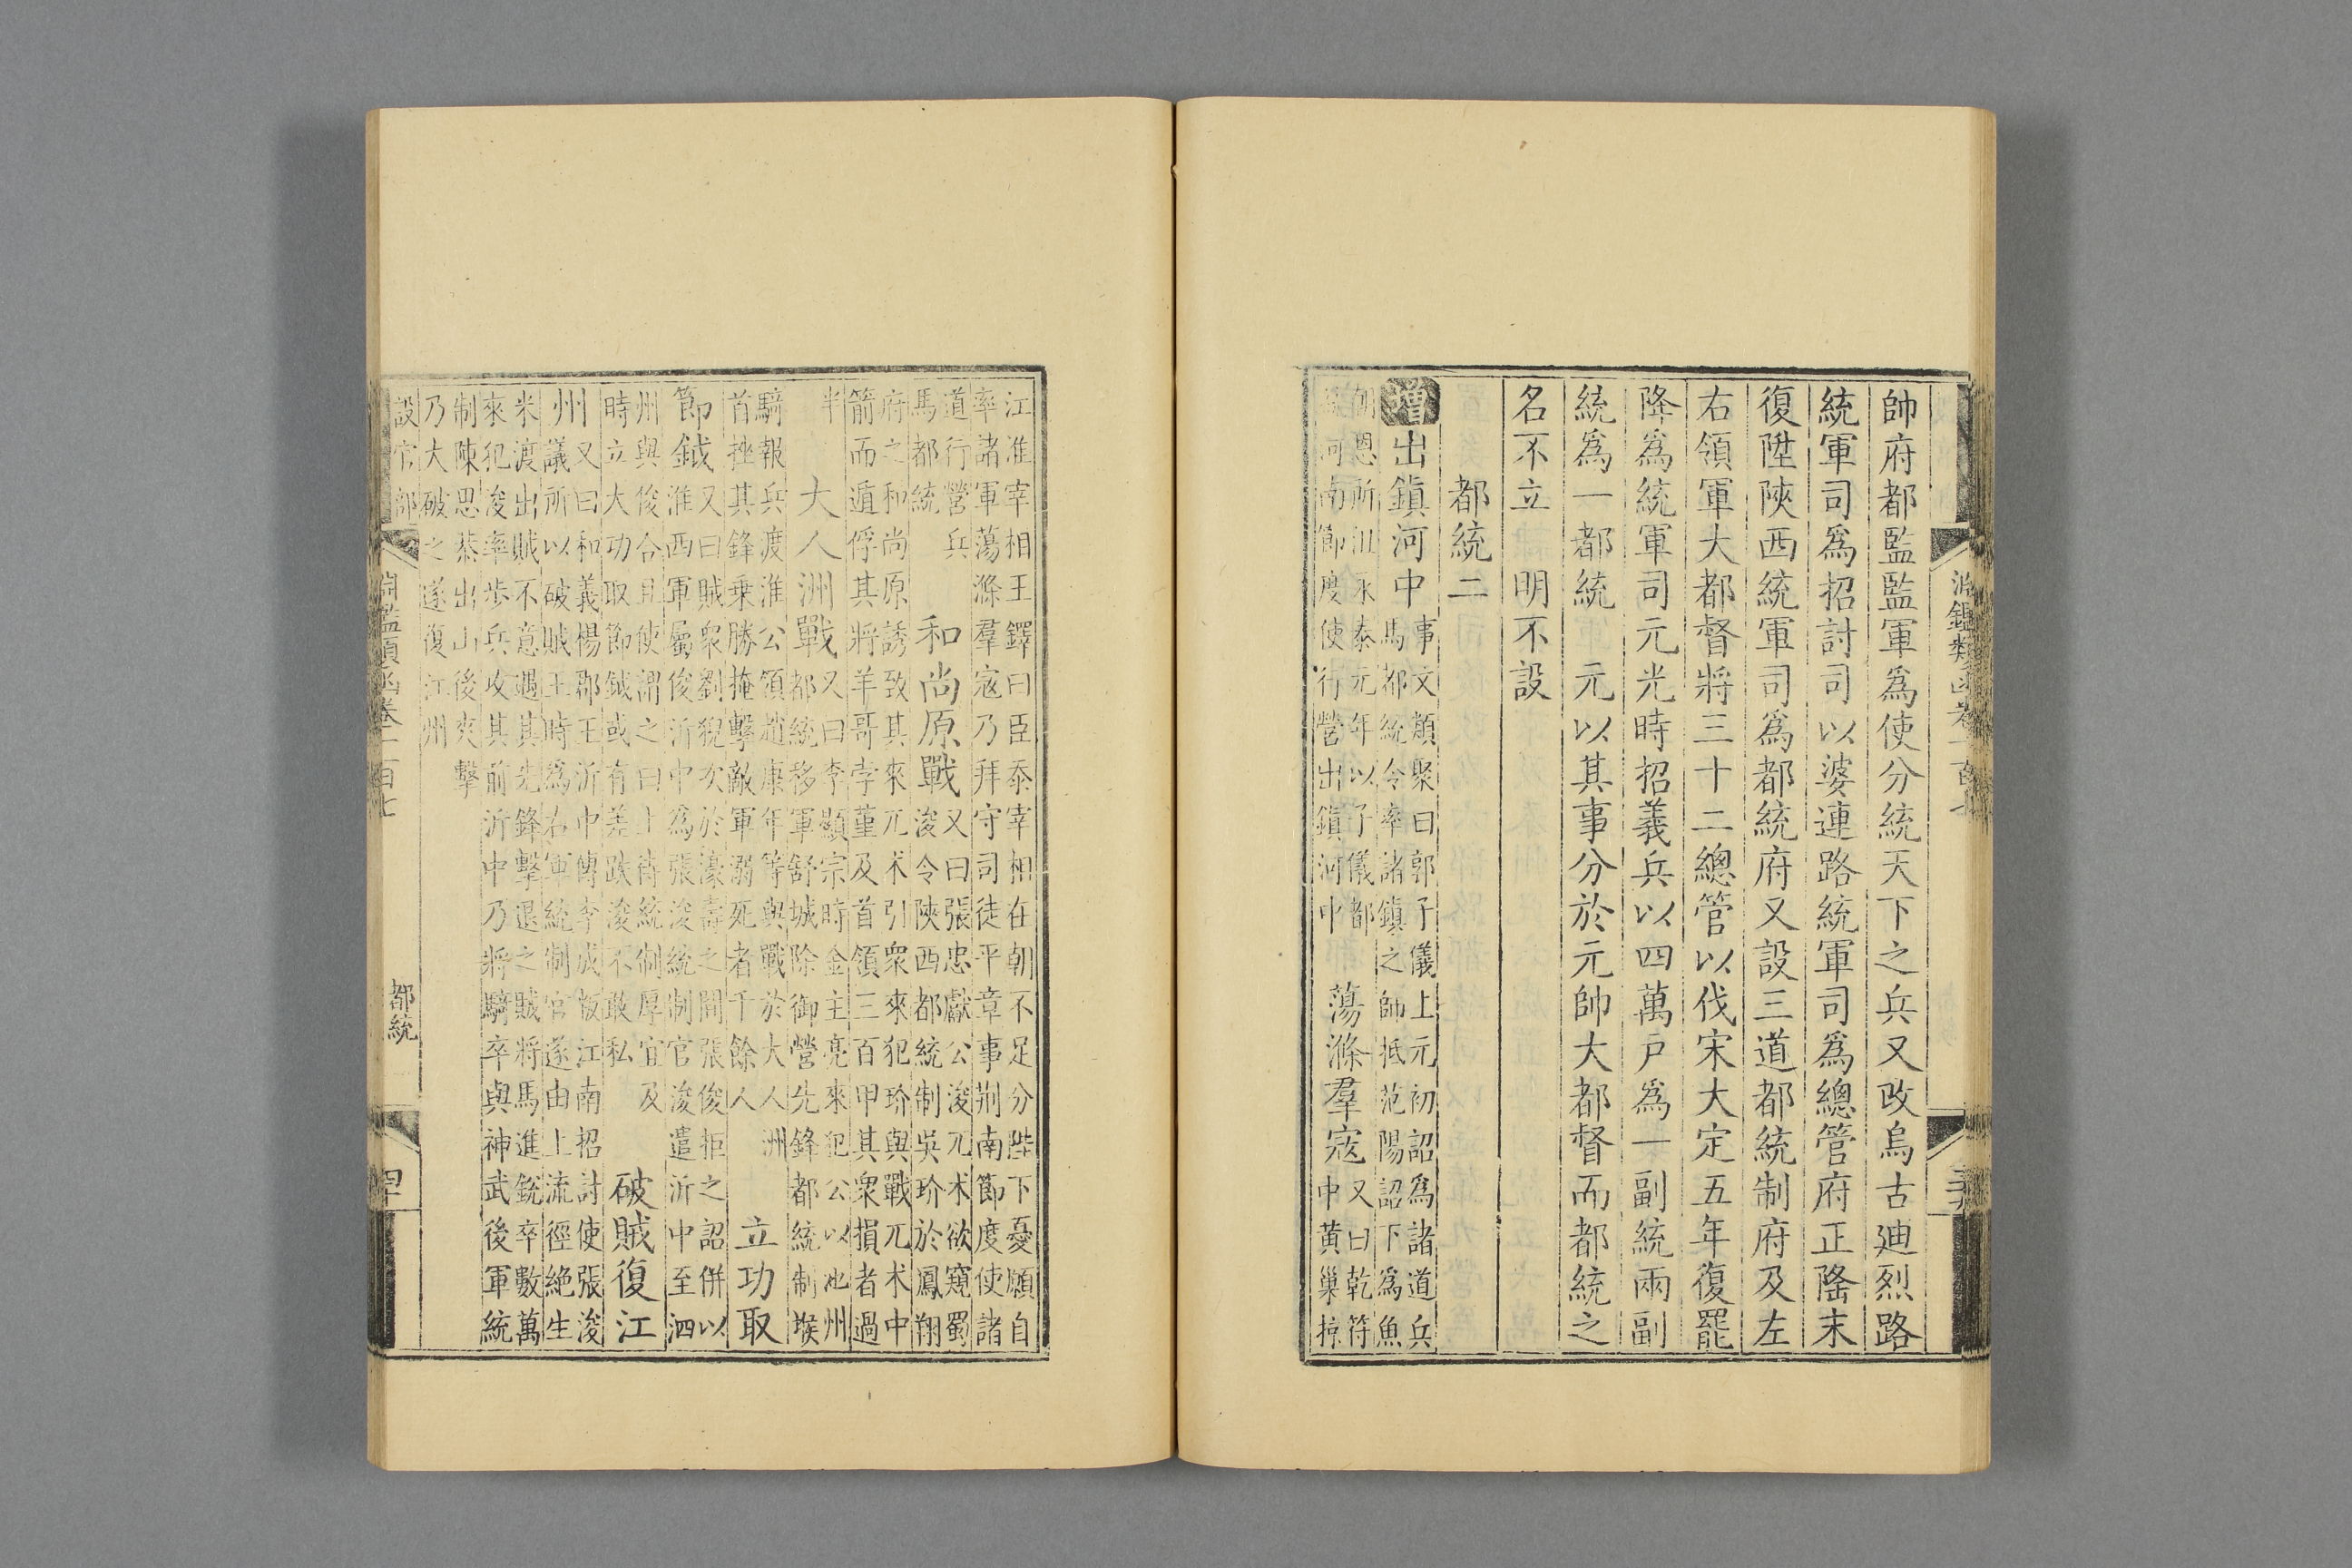 帥府都監監軍爲使分統天下之兵又改烏古廸烈路
統軍司爲招討司以婆連路統軍司爲總管府正隆末
復陞陝西統軍司爲都統府又設三道都統制府及左
右領軍大都督將三十二總管以伐宋大定五年復罷
降爲統軍司元光時招義兵以四萬戸爲一副統兩副
統爲一都統 元以其事分於元帥大都督而都統之
名不立 明不設
都統二
增 出鎭河中
事文類聚曰郭子儀上元初詔爲諸道兵
馬都統令率諸鎭之師抵范陽詔下爲魚
朝恩所沮永泰元年以子儀都
統河南節度使行營出鎭河中
蕩滌羣寇
又曰乾符
中黃巢掠
江淮宰相王鐸曰臣忝宰相在朝不足分陛下憂願自
率諸軍蕩滌羣寇乃拜守司徒平章事荆南節度使諸
道行營兵
馬都統
和尚原戰
又曰張忠獻公浚兀术欲窺蜀
浚令陝西都統制吳玠於鳳翔
府之和尚原誘致其來兀术引衆來犯玠與戰兀术中
箭而遁俘其將羊哥孛堇及首領三百甲其衆損者過
半
大人洲戰
又曰李顯宗時金主亮來犯公以池州
都統移軍舒城除御營先鋒都統制堠
騎報兵渡淮公領趙康年等與戰於大人洲
首挫其鋒乗勝掩擊敵軍溺死者千餘人
立功取
節鉞
又曰賊衆劉猊次於濠壽之間張俊拒之詔併以
淮西軍屬俊沂中爲張浚統制官浚遣沂中至泗
州與俊合且使謂之曰上待統制厚宜及
時立大功取節鉞或有差跌浚不敢私
破賊復江
州
又曰和義楊郡王沂中傳李成叛江南招討使張浚
議所以破賊王時爲右軍統制官遂由上流徑絶生
米渡出賊不意遇其先鋒擊退之賊將馬進銳卒數萬
來犯浚率歩兵攻其前沂中乃將騎卒與神武後軍統
制陳思恭出山後夾擊
乃大破之遂復江州
淵鑑類函卷一百七
設官部
都統